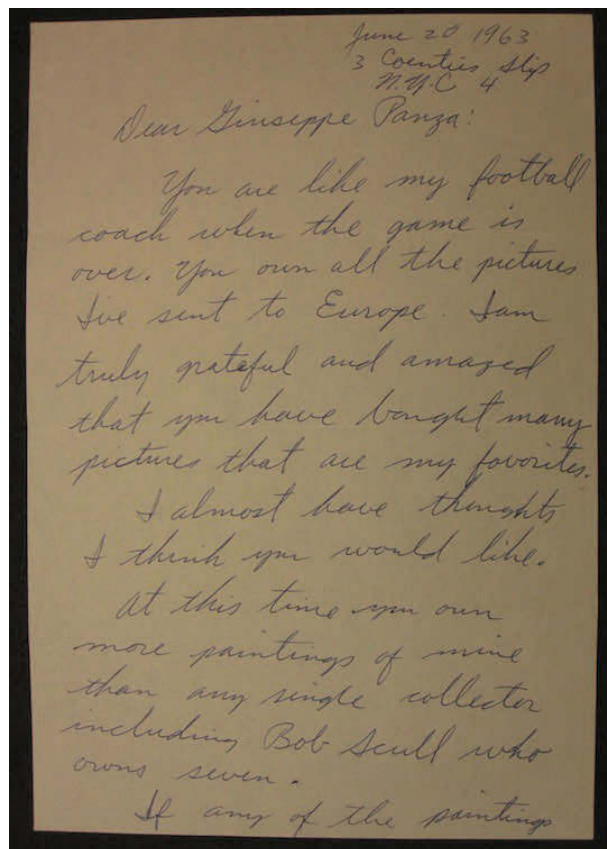 June 20 1963
3 Coenties Slip
N.Y.C 4
Dear Giuseppe Panza:
You are like my football
coach when the game is
over. You own all the pictures
I've sent to Europe. I am
truly grateful and amazed
that you have bought many
pictures that are my favorites.
I almost have thoughts
I think you would like.
At this time you own
more paintings of mine
than any single collector
including Bob Scull who
owns seven.
If any of the paintings